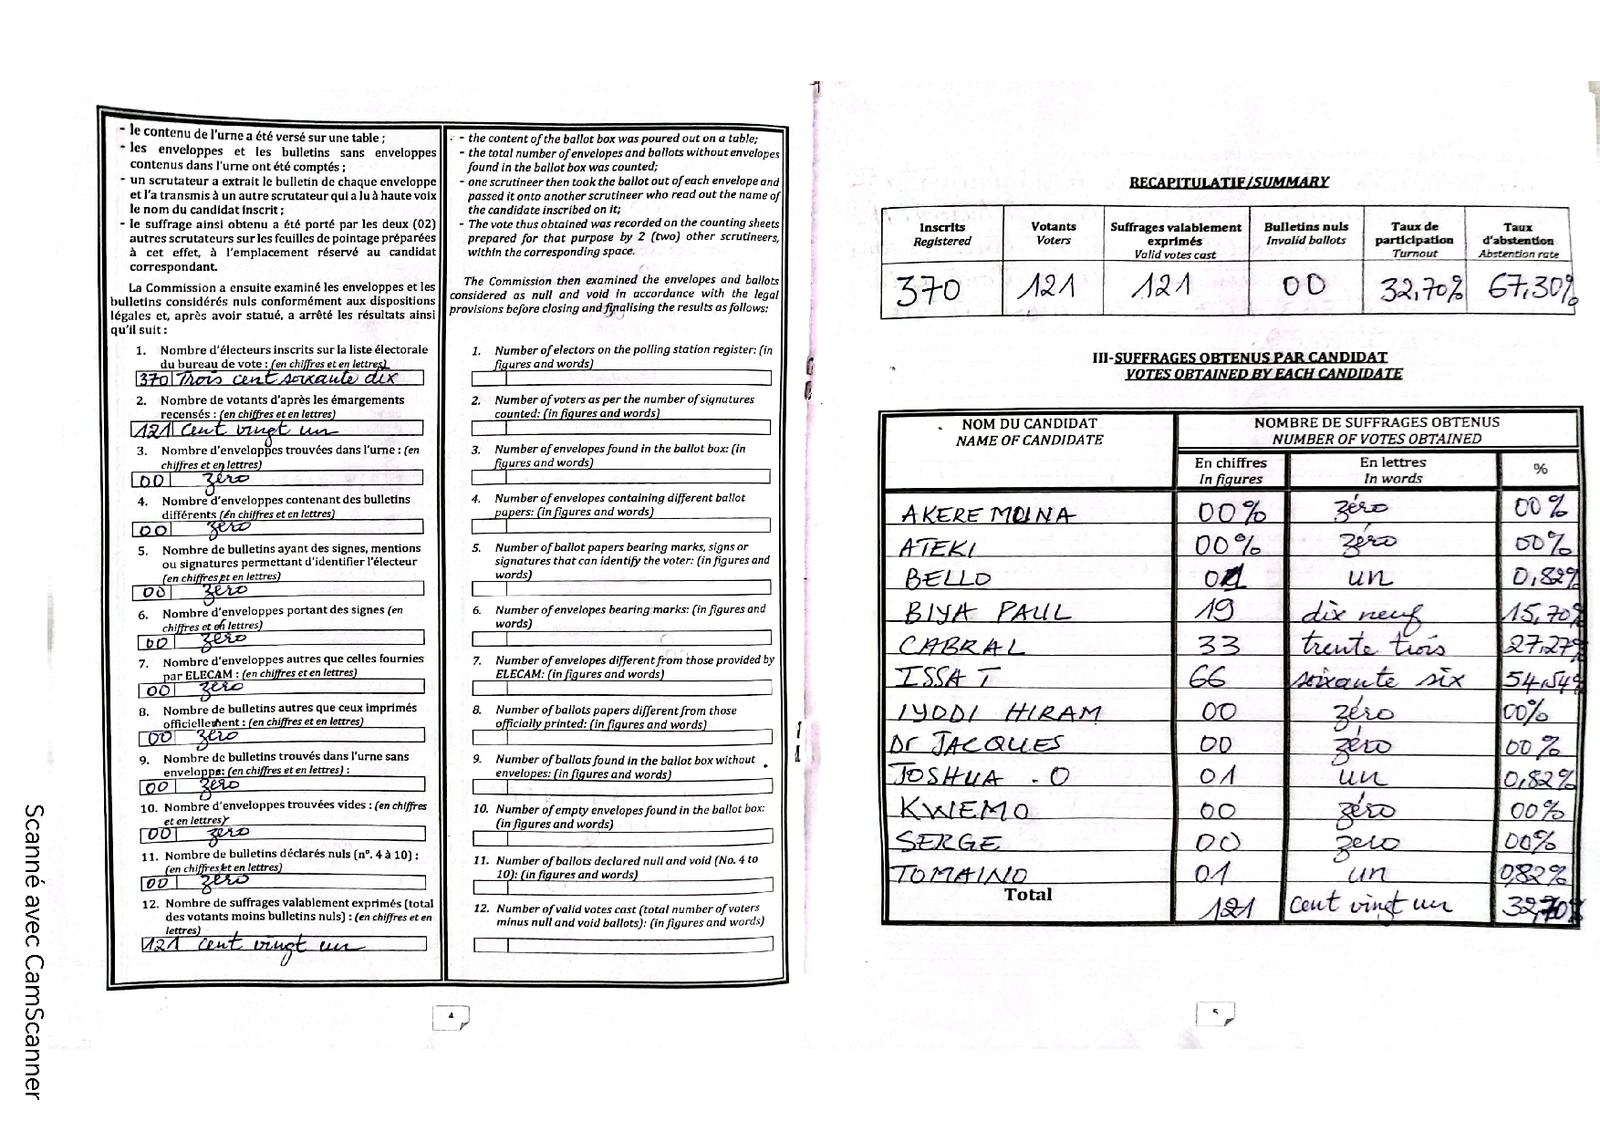 - le contenu de l'urne a été versé sur une table ;
- les enveloppes et les bulletins sans enveloppes
contenus dans l'urne ont été comptés ;
- un scrutateur a extrait le bulletin de chaque enveloppe
et l'a transmis à un autre scrutateur qui a lu à haute voix
le nom du candidat inscrit ;
- le suffrage ainsi obtenu a été porté par les deux (02)
autres scrutateurs sur les feuilles de pointage préparées
à cet effet, à l'emplacement réservé au candidat
correspondant.
La Commission a ensuite examiné les enveloppes et les
bulletins considérés nuls conformément aux dispositions
légales et, après avoir statué, a arrêté les résultats ainsi
qu'il suit :
1. Nombre d'électeurs inscrits sur la liste électorale
du bureau de vote : (en chiffres et en lettres)
370 Trois cent soixante dix
2. Nombre de votants d'après les émargements
recensés : (en chiffres et en lettres)
121 cent vingt un
3. Nombre d'enveloppes trouvées dans l'urne : (en
chiffres et en lettres)
00 zéro
4. Nombre d'enveloppes contenant des bulletins
différents (én chiffres et en lettres)
00 zéro
5. Nombre de bulletins ayant des signes, mentions
ou signatures permettant d'identifier l'électeur
(en chiffres et en lettres)
00 zéro
6. Nombre d'enveloppes portant des signes (en
chiffres et en lettres)
00 zéro
7. Nombre d'enveloppes autres que celles fournies
par ELECAM : (en chiffres et en lettres)
00 zéro
8. Nombre de bulletins autres que ceux imprimés
officiellement : (en chiffres et en lettres)
00 zéro
9. Nombre de bulletins trouvés dans l'urne sans
enveloppe: (en chiffres et en lettres) :
00 zéro
10. Nombre d'enveloppes trouvées vides : (en chiffres
et en lettres)
00 zéro
11. Nombre de bulletins déclarés nuls (n°. 4 à 10) :
(en chiffres et en lettres)
00 zéro
12. Nombre de suffrages valablement exprimés (total
des votants moins bulletins nuls) : (en chiffres et en
lettres)
121 cent vingt un
- the content of the ballot box was poured out on a table;
- the total number of envelopes and ballots without envelopes
found in the ballot box was counted;
- one scrutineer then took the ballot out of each envelope and
passed it onto another scrutineer who read out the name of
the candidate inscribed on it;
- The vote thus obtained was recorded on the counting sheets
prepared for that purpose by 2 (two) other scrutineers,
within the corresponding space.
The Commission then examined the envelopes and ballots
considered as null and void in accordance with the legal
provisions before closing and finalising the results as follows:
1. Number of electors on the polling station register: (in
figures and words)
2. Number of voters as per the number of signatures
counted: (in figures and words)
3. Number of envelopes found in the ballot box: (in
figures and words)
4. Number of envelopes containing different ballot
papers: (in figures and words)
5. Number of ballot papers bearing marks, signs or
signatures that can identify the voter: (in figures and
words)
6. Number of envelopes bearing marks: (in figures and
words)
7. Number of envelopes different from those provided by
ELECAM: (in figures and words)
8. Number of ballots papers different from those
officially printed: (in figures and words)
9. Number of ballots found in the ballot box without
envelopes: (in figures and words)
10. Number of empty envelopes found in the ballot box:
(in figures and words)
11. Number of ballots declared null and void (No. 4 to
10): (in figures and words)
12. Number of valid votes cast (total number of voters
minus null and void ballots): (in figures and words)
4
RECAPITULATIF/SUMMARY
Inscrits Votants Suffrages valablement Bulletins nuls Taux de Taux
Registered Voters exprimés Invalid ballots participation d'abstention
Valid votes cast Turnout Abstention rate
370 121 121 00 32,70% 67,30%
III-SUFFRAGES OBTENUS PAR CANDIDAT
VOTES OBTAINED BY EACH CANDIDATE
NOM DU CANDIDAT NOMBRE DE SUFFRAGES OBTENUS
NAME OF CANDIDATE NUMBER OF VOTES OBTAINED
En chiffres En lettres %
In figures In words
AKERE MUNA 00% zéro 00%
ATEKI 00% zéro 00%
BELLO 01 un 0,82%
BIYA PAUL 19 dix neuf 15,70%
CABRAL 33 trente trois 27,27%
ISSA T 66 soixante six 54,54%
IYODI HIRAM 00 zéro 00%
Dr JACQUES 00 zéro 00%
JOSHUA . O 01 un 0,82%
KWEMO 00 zéro 00%
SERGE 00 zero 00%
TOMAINO 01 un 0,82%
Total 121 cent vingt un 32,70%
5
Scanné avec CamScanner